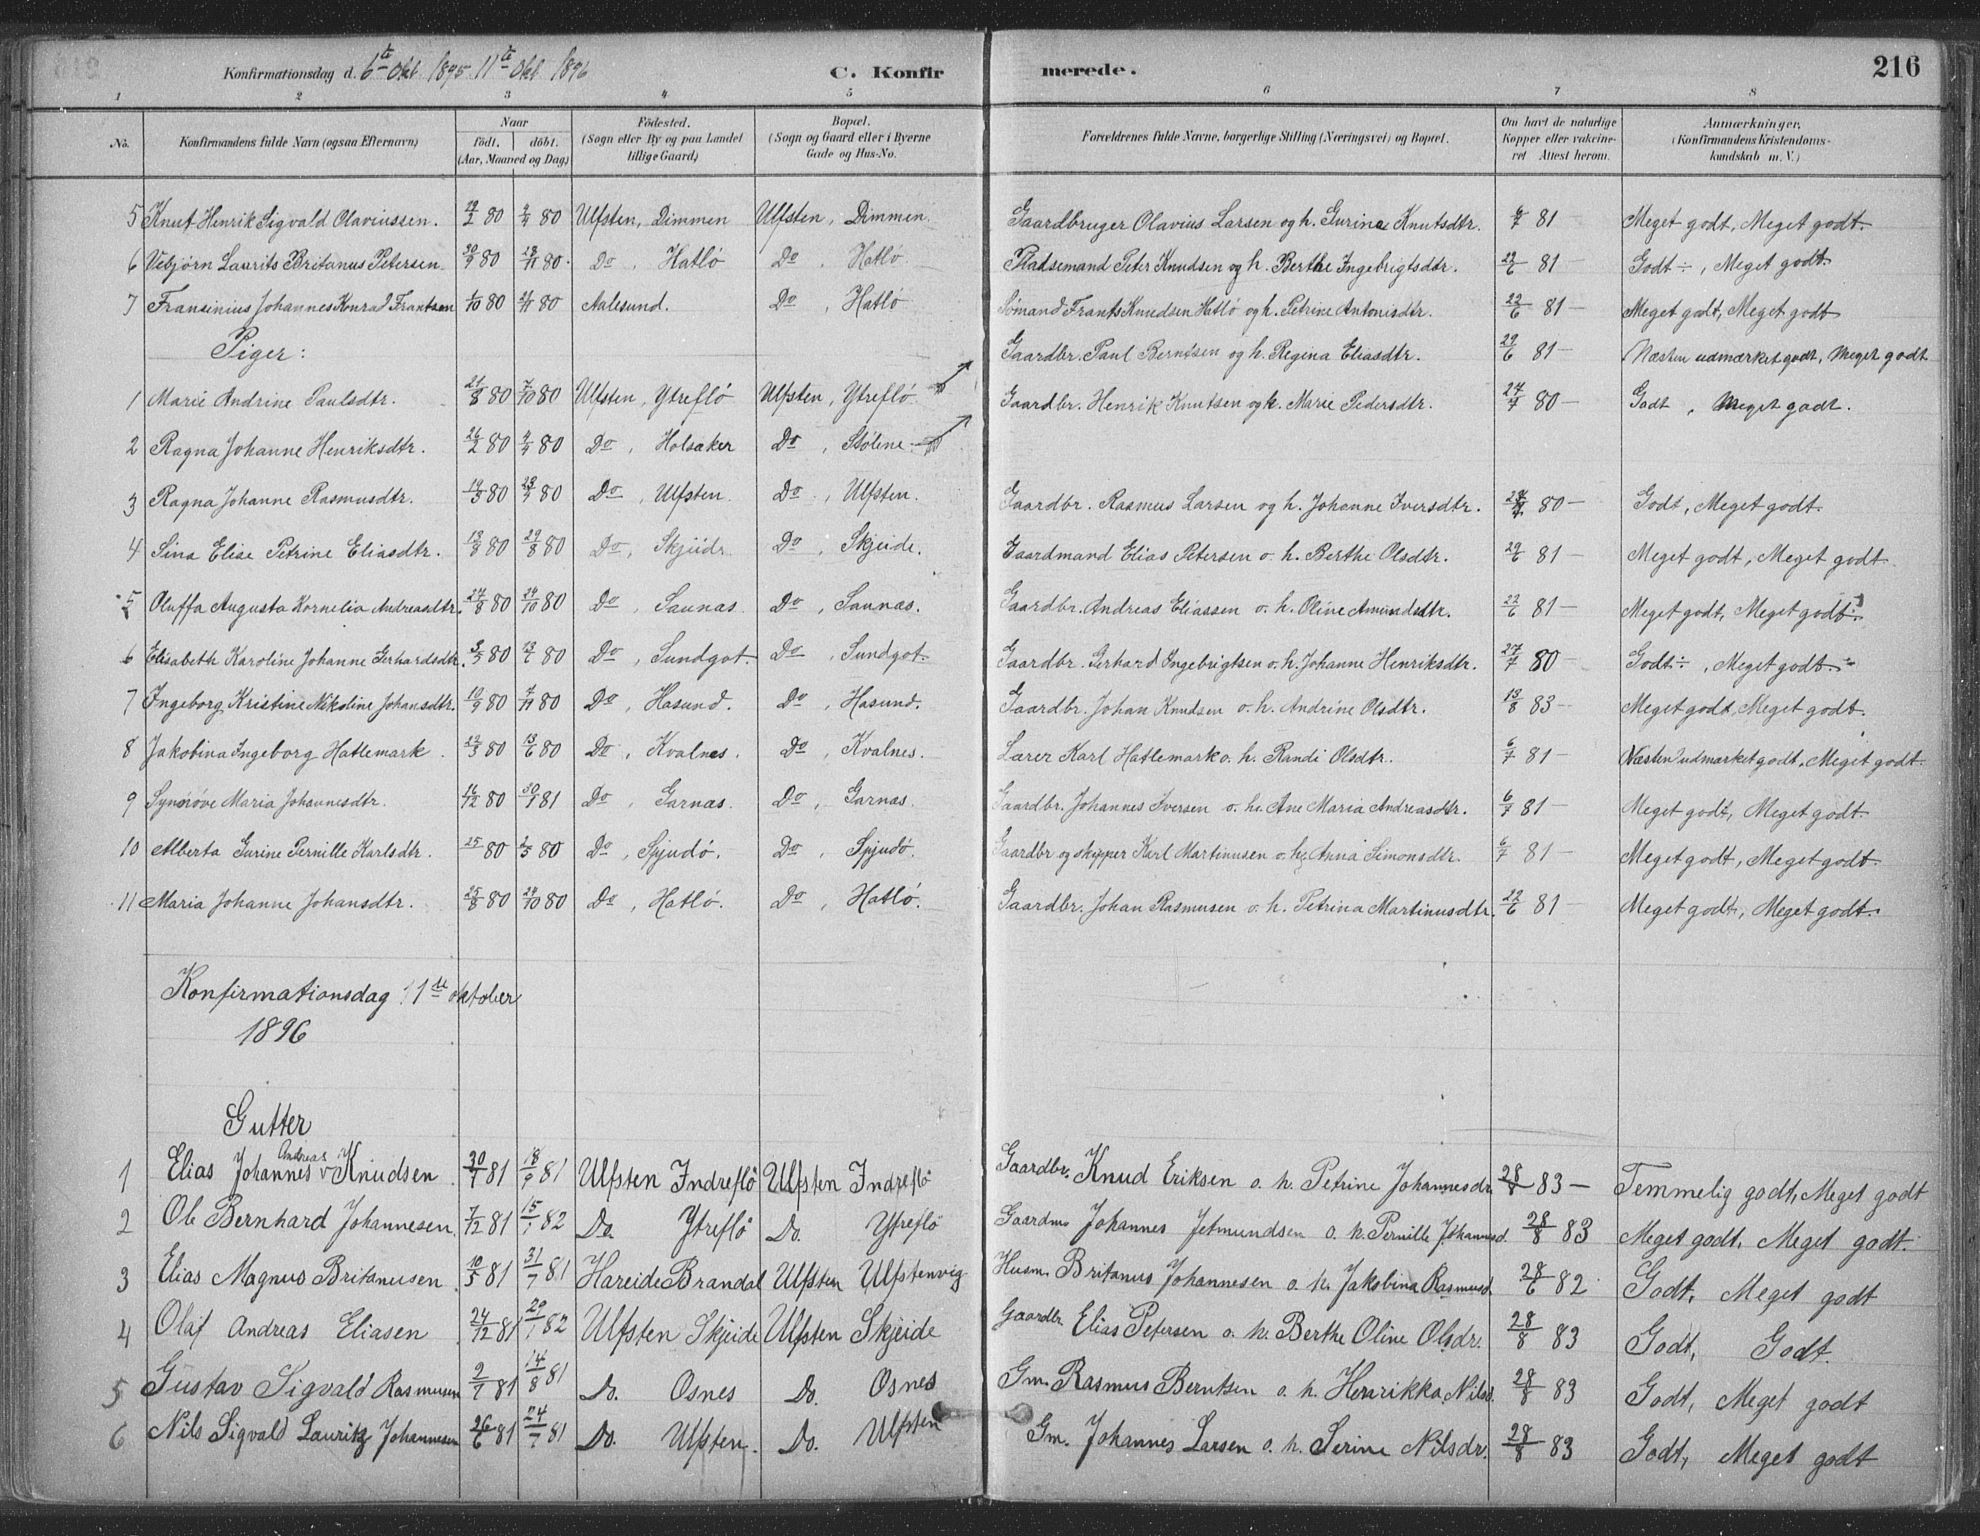 Konfirmationsdag d. 6te Okt 1895. 11te Okt 1896 C. Konfirmerede. 216
1 2 3 4 5 6 7 8
No. Konfirmandens fulde Navn (ogsaa Efternavn) Naar födt. döbt. (Aar, Maaned og Dag) Födested. (Sogn eller By og paa Landet tillige Gaard) Bopæl. (Sogn og Gaard eller i Byerne Gade og Hus-No. Forældrenes fulde Navne, borgerlige Stilling (Næringsvei) og Bopæl. Om havt de naturlige Kopper eller vakcineret Attest herom. Anmærkninger, (Konfirmandens Kristendomskundskab m. V.)
5 Knut Henrik Sigvald Olaviussen. 29/2 80 80 Ulfsten, Dimmen Ulfsten, Dimmen. Gaardbruger Olavius Larsen og h. Gurine Knutsdtr. 6/7 81 Meget godt, Meget godt.
6 Vebjørn Laurits Britanus Petersen. 30/9 80 13/11 80. Do, Hatlö Do Hatlö. Pladsemand Peter Knudsen og h. Berthe Ingebrigtsdtr. 22/6 81 – Godt ÷, Meget godt.
7 Fransinius Johannes Konrad Frantsen 1/10 80 21/11 80 Aalesund. Do, Hatlö Sömand Frants Knudsen Hatlö og h. Petrine Antonisdtr. 22/6 81 – Meget godt, Meget godt
Piger: Gaardbr. Paul Berntsen og h. Regina Eliasdtr. 29/6 81 – Næsten udmærket godt, Meget godt
1 Marie Andrine Paulsdtr. 21/8 80 7/10 80 Ulfsten, Ytreflö Ulfsten, Ytreflö. Gaardbr. Henrik Knutsen og h. Marie Pedersdtr. 27/7 80 – Godt, Meget godt.
2 Ragna Johanne Henriksdtr. 26/2 80 4/4 80 Do, Holsaker Do, Stölene.
3 Ragna Johanne Rasmusdtr. 19/3 80 28/3 80 Do, Ulfsten. Do, Ulfsten. Gaardbr. Rasmus Larsen og h. Johanne Iversdtr. 80 – Godt, Meget godt.
4 Sina Elise Petrine Eliasdtr. 13/8 80 29/8 80 Do, Skjeide Do, Skjeide. Gaardmand Elias Petersen o. h. Berthe Olsdtr. 29/6 81 – Meget godt, Meget godt
5 Oluffa Augusta Kornelia Andreasdtr. 27/8 80 24/10 80 Do, Saunas. Do, Saunas. Gaardbr. Andreas Eliassen o. h. Oline Amundsdtr. 22/6 81 – Meget godt, Meget godt.
6 Elisabeth Karoline Johanne Gerhardsdtr. 3/5 80 13/6 80 Do, Sundgot. Do, Sundgot. Gaardbr. Gerhard Ingebrigtsen o. h. Johanne Henriksdtr. 27/7 80 Godt ÷, Meget godt ÷
7 Ingeborg Kristine Nikoline Johansdtr. 10/9 80 7/11 80 Do, Hasund. Do, Hasund. Gaardbr. Johan Knudsen o. h. Andrine Olsdtr. 13/8 83 – Meget godt, Meget godt.
8 Jakobina Ingeborg Hatlemark. 22/3 80 13/6 80 Do, Kvalnes. Do, Kvalnes. Lærer Karl Hatlemark o. h. Randi Olsdtr. 6/7 81 – Næsten udmærket godt, Meget godt.
9 Synörve Maria Johannesdtr. 16/12 80 30/1 81 Do, Garnas. Do, Garnas. Gaardbr. Johannes Iversen o. h. Ane Maria Andreasdtr. 6/7 81 – Meget godt, Meget godt.
10 Alberta Gurine Pernille Karlsdtr. 25 80 2/5 80 Do, Spjudö. Do, Spjudö. Gaardbr og skipper Karl Martinusen o. h. Anna Simonsdtr. 6/7 81 – Meget godt, Meget godt.
11 Maria Johanne Johansdtr. 25/8 80 24/10 80 Do, Hatlö. Do, Hatlö. Gaardbr. Johan Rasmusen o. h. Petrina Martinusdtr. 22/6 81 – Meget godt, Meget godt.
Konfirmationsdag 11te oktober
1896
Gutter
1 Elias Johannes Andreas Knudsen 30/7 81 18/9 81 Ulfsten Indreflö Ulfsten Indreflö Gaardbr. Knud Eriksen o. h. Petrine Johannesdr. 28/8 83 – Temmelig godt, Meget godt
2 Ole Bernhard Johannesen. 7/12 81 15/1 82 Do. Ytreflö Do. Ytreflö Gaardm Johannes Jetmundsen o. h. Pernille Johannesd. 28/8 83 Meget godt, Meget godt.
3 Elias Magnus Britanusen 10/5 81 31/7 81 Hareide Brandal Ulfsten Ulfstenvig Husm. Britanus Johannesen o. h. Jakobina Rasmusd. 28/6 82 Godt, Meget godt
4 Olaf Andreas Eliasen 24/12 81 29/1 82 Ulfsten Skjeide Ulfsten Skjeide Gaardbr Elias Petersen o. h. Berthe Oline Olsdr. 28/8 83 Godt, Godt.
5 Gustav Sigvald Rasmusen 2/7 81 14/8 81 Do. Osnes Do. Osnes Gm. Rasmus Berntsen o. h. Henrikka Nilsd. 28/8 83 Godt, Meget godt
6 Nils Sigvald Lauritz Johannesen 26/6 81 24/7 81 Do. Ulfsten. Do. Ulfsten Gm. Johannes Larsen o. h. Serine Nilsdr. 28/8 83 Godt, Meget godt